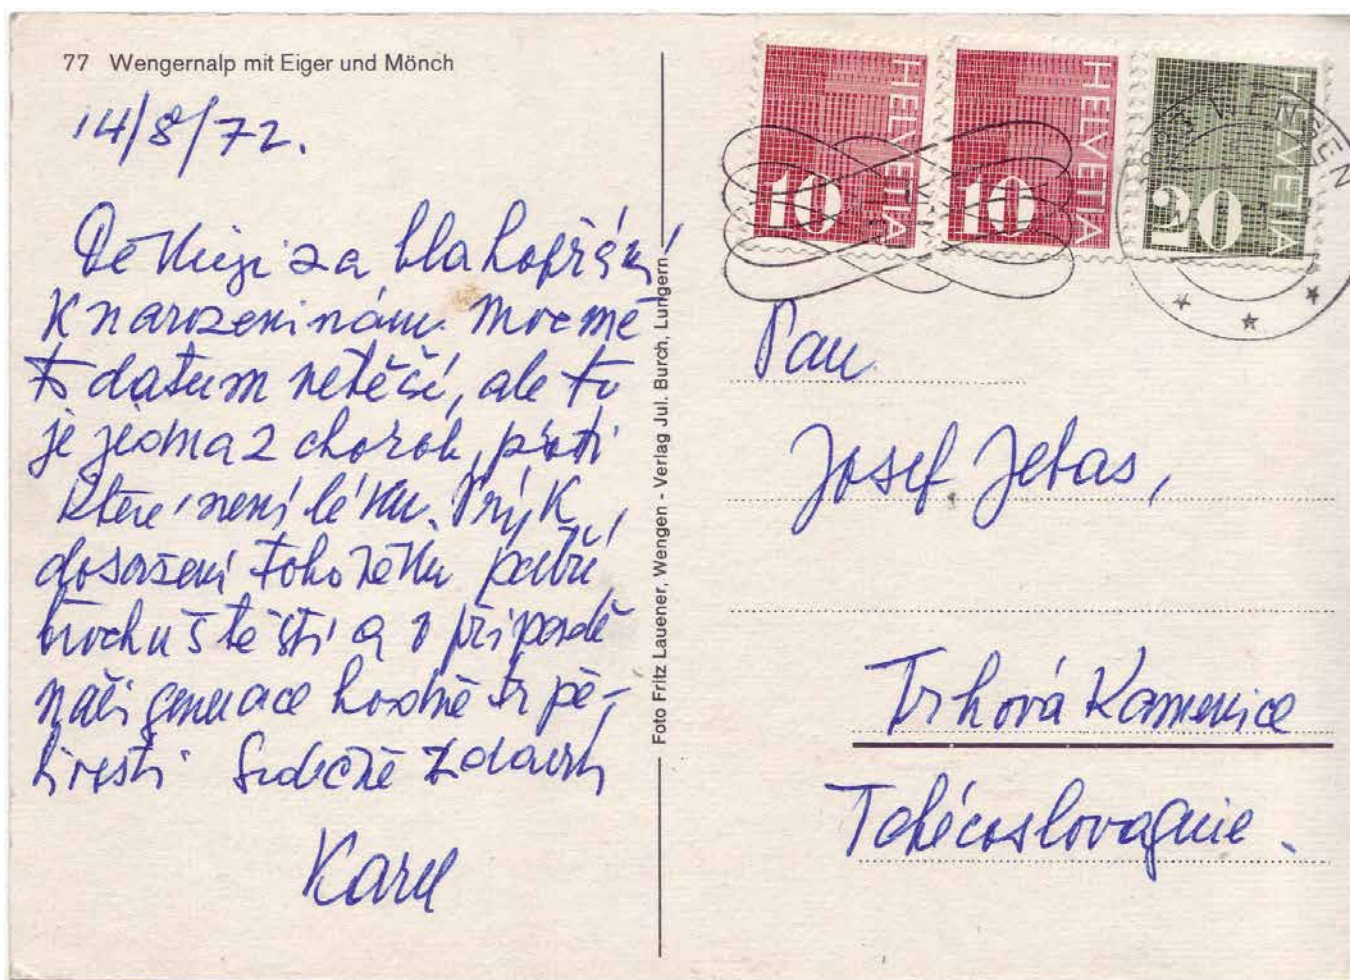 77 Wengernalp mit Eiger und Mönch
14/8/72.
Děkuji za blahopřání
K narozeninám. Moc mě
to datum netěší, ale to
je jedna z chorob, proti
které není léku. Prý k
dosažení toho věku patří
trochu štěstí a v případě
naší generace hodně trpě-
livosti Srdečně zdraví
Karel
Foto Fritz Lauener, Wengen - Verlag Jul. Burch, Lungern
HELVETIA
10
HELVETIA
10
HELVETIA
20
Pan
Josef Jebas,
Trhová Kamenice
Tchécoslovaquie.